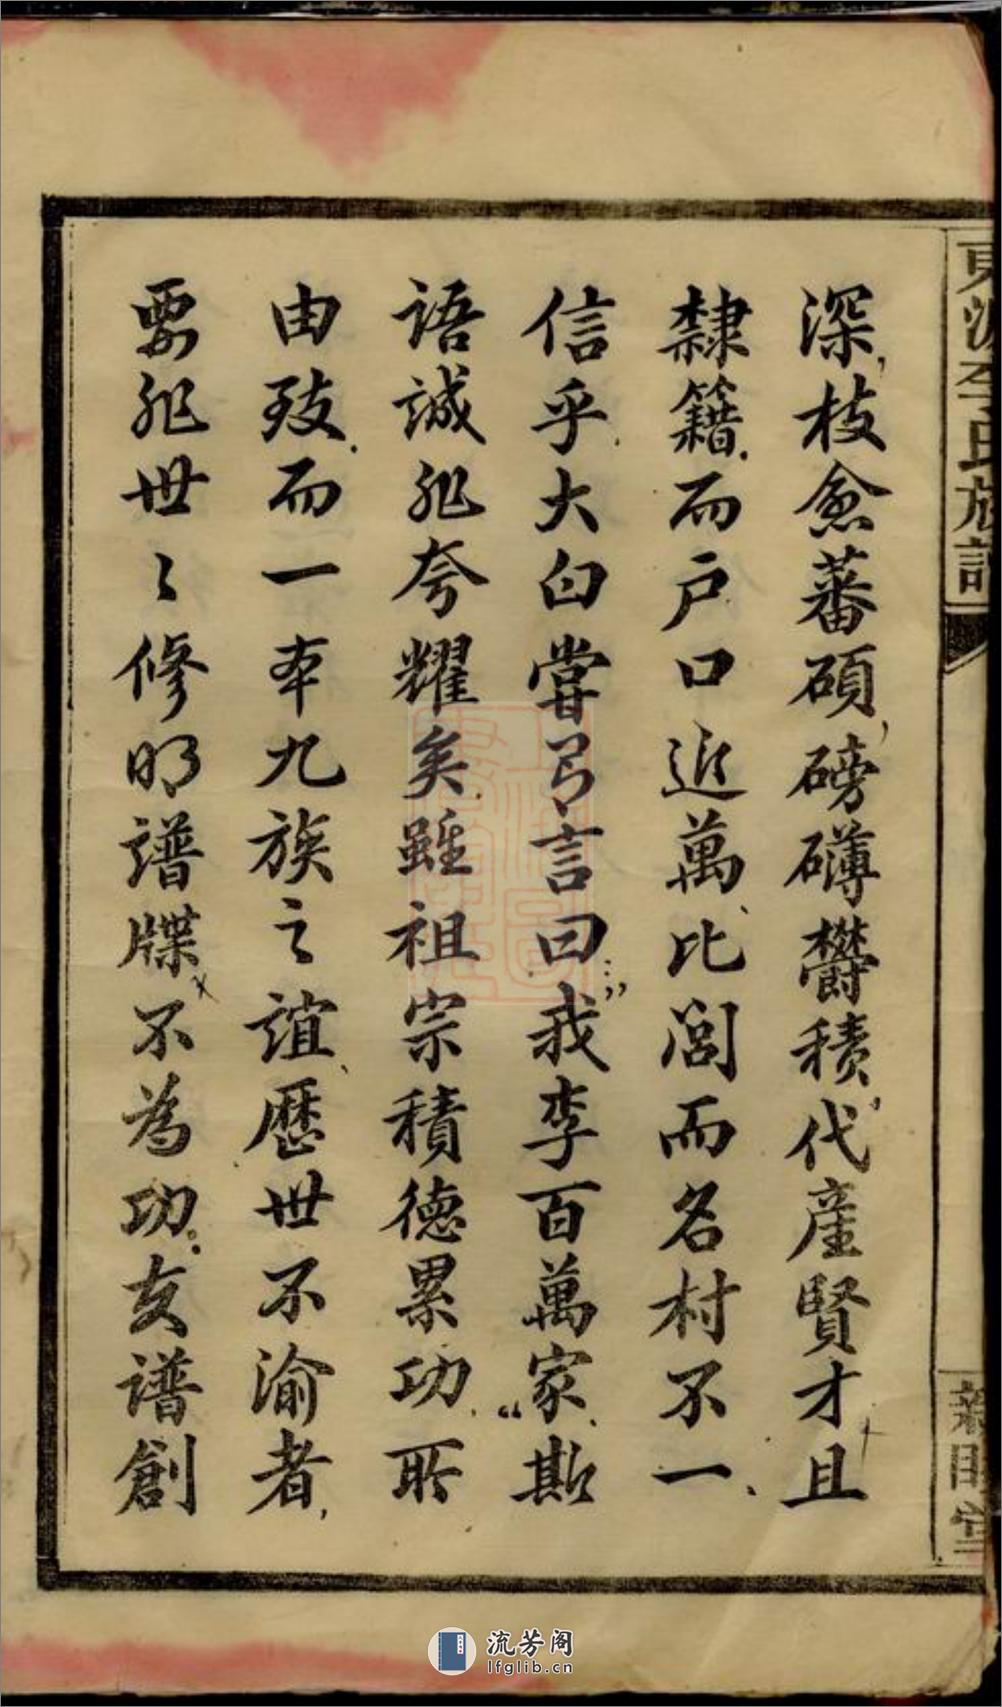 東源李氏族譜
深枝愈蕃碩磅礴欝積代產賢才且
隸籍而戶口近萬比閭而名村不一
信乎大白嘗有言曰我李百萬家斯
語誠非夸耀矣雖祖宗積德累功所
由致而一本九族之誼歷世不渝者
要非世〻修明譜牒不為功夫譜創
流芳阁
lfglib.cn